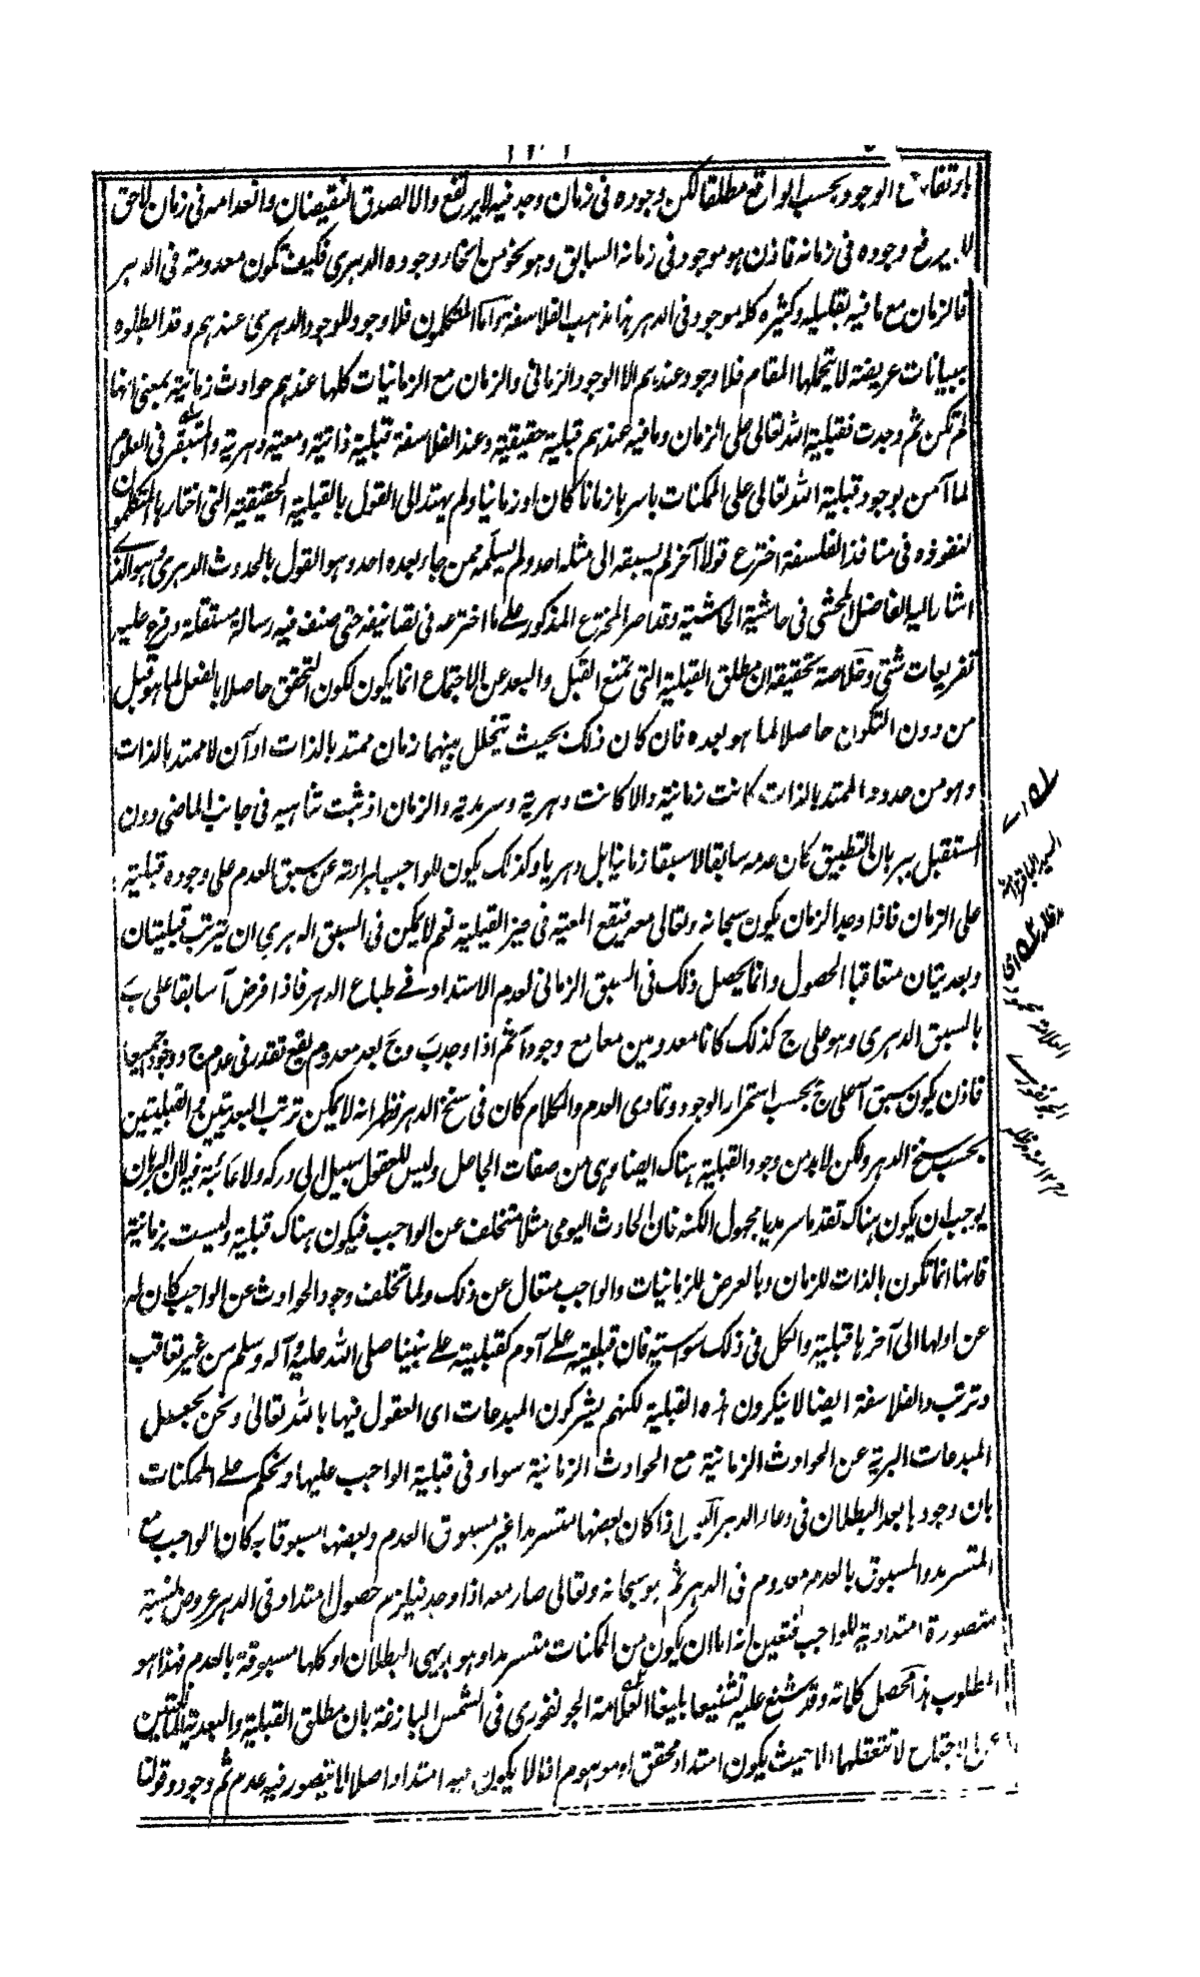 بارتفاع الوجود بحسب الواقع مطلقا لكن وجوده فى زمان وجد فيه لا يرتفع والا لصدق النقيضان وانعدامه فى زمان لاحق
لا يرفع وجوده فى زمانه فاذن هو موجود فى زمانه السابق وهو نحو من انحاء وجوده الدهرى فكيف تكون معدومة فى الدهر
فالزمان مع ما فيه بقليله وكثيره كله موجود فى الدهر هذا مذهب الفلاسفة واما المتكلمون فلا وجود للوجود الدهرى عندهم وقد ابطلوه
ببيانات عريضة لا يتحملها المقام فلا وجود عندهم الا الوجود الزمانى والزمان مع الزمانيات كلها عندهم حوادث زمانية بمعنى انها
لم تكن ثم وجدت فقبلية الله تعالى على الزمان وما فيه عندهم قبلية حقيقية وعند الفلاسفة قبلية ذاتية ومعية دهرية والمستبقر فى العلوم
لما آمن بوجود قبلية الله تعالى على الممكنات باسرها زمانا كان او زمانيا ولم يهتد الى القول بالقبلية الحقيقية التى اختارها المتكلمون
لنفوذه فى منافذ الفلسفة اخترع قولا آخر لم يسبقه الى مثله احد ولم يسلمه ممن جاء بعده احد وهو القول بالحدوث الدهرى وهو الذى
اشار اليه الفاضل المحشى فى حاشية الحاشية وقد اصر المخترع المذكور على ما اخترعه فى تصانيفه حتى صنف فيه رسالة مستقلة وفرع عليه
تفريعات شتى وخلاصة تحقيقه ان مطلق القبلية التى تمنع القبل والبعد عن الاجتماع انما يكون لكون التحقق حاصلا بالفعل لما هو قبل
من دون التكون حاصلا لما هو بعده فان كان ذلك بحيث يتخلل بينهما زمان ممتد بالذات او آن لا ممتد بالذات
وهو من حدود الممتد بالذات كانت زمانية والا كانت دهرية وسرمدية والزمان اذ ثبت تناهيه فى جانب الماضى دون
المستقبل ببرهان التطبيق كان عدمه سابقا لا سبقا زمانيا بل دهريا وكذلك يكون للواجب لبراءته عن سبق العدم على وجوده قبلية
على الزمان فاذا وجد الزمان يكون سبحانه وتعالى معه فيقع المعية فى حيز القبلية نعم لا يمكن فى السبق الدهرى ان يترتب قبليتان
وبعديتان متعاقبا الحصول وانما يحصل ذلك فى السبق الزمانى لعدم الامتداد فى طباع الدهر فاذا فرض آ سابقا على ب
بالسبق الدهرى وهو على ج كذلك كانا معدومين معا مع وجود آ ثم اذا وجد ب وج بعد معدوم يقع تقدر فى عدم ج ووجود جميعا
فاذن يكون سبق آ على ج بحسب استمرار الوجود وتمادى العدم والكلام كان فى سنخ الدهر فظهر انه لا يمكن ترتب البعديتين والقبليتين
بحسب سنخ الدهر ولكن لا بد من وجود القبلية هناك ايضا وهى من صفات الجاعل وليس للعقول سبيل الى دركه ولا غائبة فيه لان البرهان
يوجب ان يكون هناك تقدما سرمديا مجهول الكنه فان الحادث اليومى مثلا متخلف عن الواجب فيكون هناك قبلية وليست بزمانية
فانها انما تكون بالذات للزمان وبالعرض للزمانيات والواجب متعال عن ذلك ولما تخلف وجود الحوادث عن الواجب كان له
عن اولها الى آخرها قبلية والكل فى ذلك سواسية فان قبليته على آدم كقبليته على نبينا صلى الله عليه وآله وسلم من غير تعاقب
وترتب والفلاسفة ايضا لا ينكرون هذه القبلية لكنهم يشركون المبدعات اى العقول فيها بالله تعالى ونحن نجعل
المبدعات البرية عن الحوادث الزمانية مع الحوادث الزمانية سواء فى قبلية الواجب عليها ونحكم على الممكنات
بان وجودها بعد البطلان فى وعاء الدهر اذا كان بعضها متسرمدا غير مسبوق العدم وبعضها مسبوقا به كان الواجب مع
المتسرمد والمسبوق بالعدم معدوم فى الدهر ثم هو سبحانه وتعالى صار معه اذا وجد فيلزم حصول امتداد فى الدهر عروض نسبية
متصورة امتدادية للواجب فتعين انه اما ان يكون من الممكنات متسرمدا وهو بديهى البطلان او كلها مسبوقة بالعدم فهذا هو
المطلوب هذا محصل كلماته وقد شنع عليه تشنيعا بليغا العلامة الجونفورى فى الشمس البازغة بان مطلق القبلية والبعدية المانعتين
عن الاجتماع لا تتعقلها الا حيث يكون امتداد محقق او موهوم اذ ما لا يكون فيه امتداد اصلا لا يتصور فيه عدم ثم وجود وقولنا
له اى
السيد الباقر
مد ظله
له اى
العلامة محمود
الجونفورى
١٢ منه مد ظله